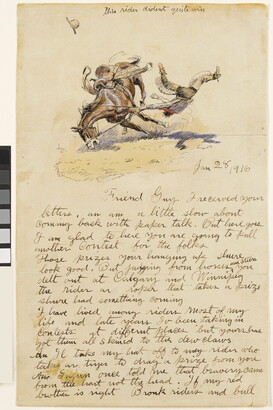 This rider dident quite win
Jan 28 1916
Friend Guy I received your
letters, am am a little slow about
comming back with paper talk. But here goes
I am glad to here you are going to pull
another Contest for the folks
Those prizes your hanging up shure
look good. But judging from broncs you
delt out at Calgary and Winnipeg
the rider or roper that takes a prize
shure had something coming
I have lived among riders most of my
life and late years Iv been taking in
contests at different places but yours
got them all skined to the dew claws
An Il take my hat off to any rider who
takes or tryes to drag a prize from you
An once told me that bravery came
from the hart not the head. If my red
brother is right Bronk riders and bull